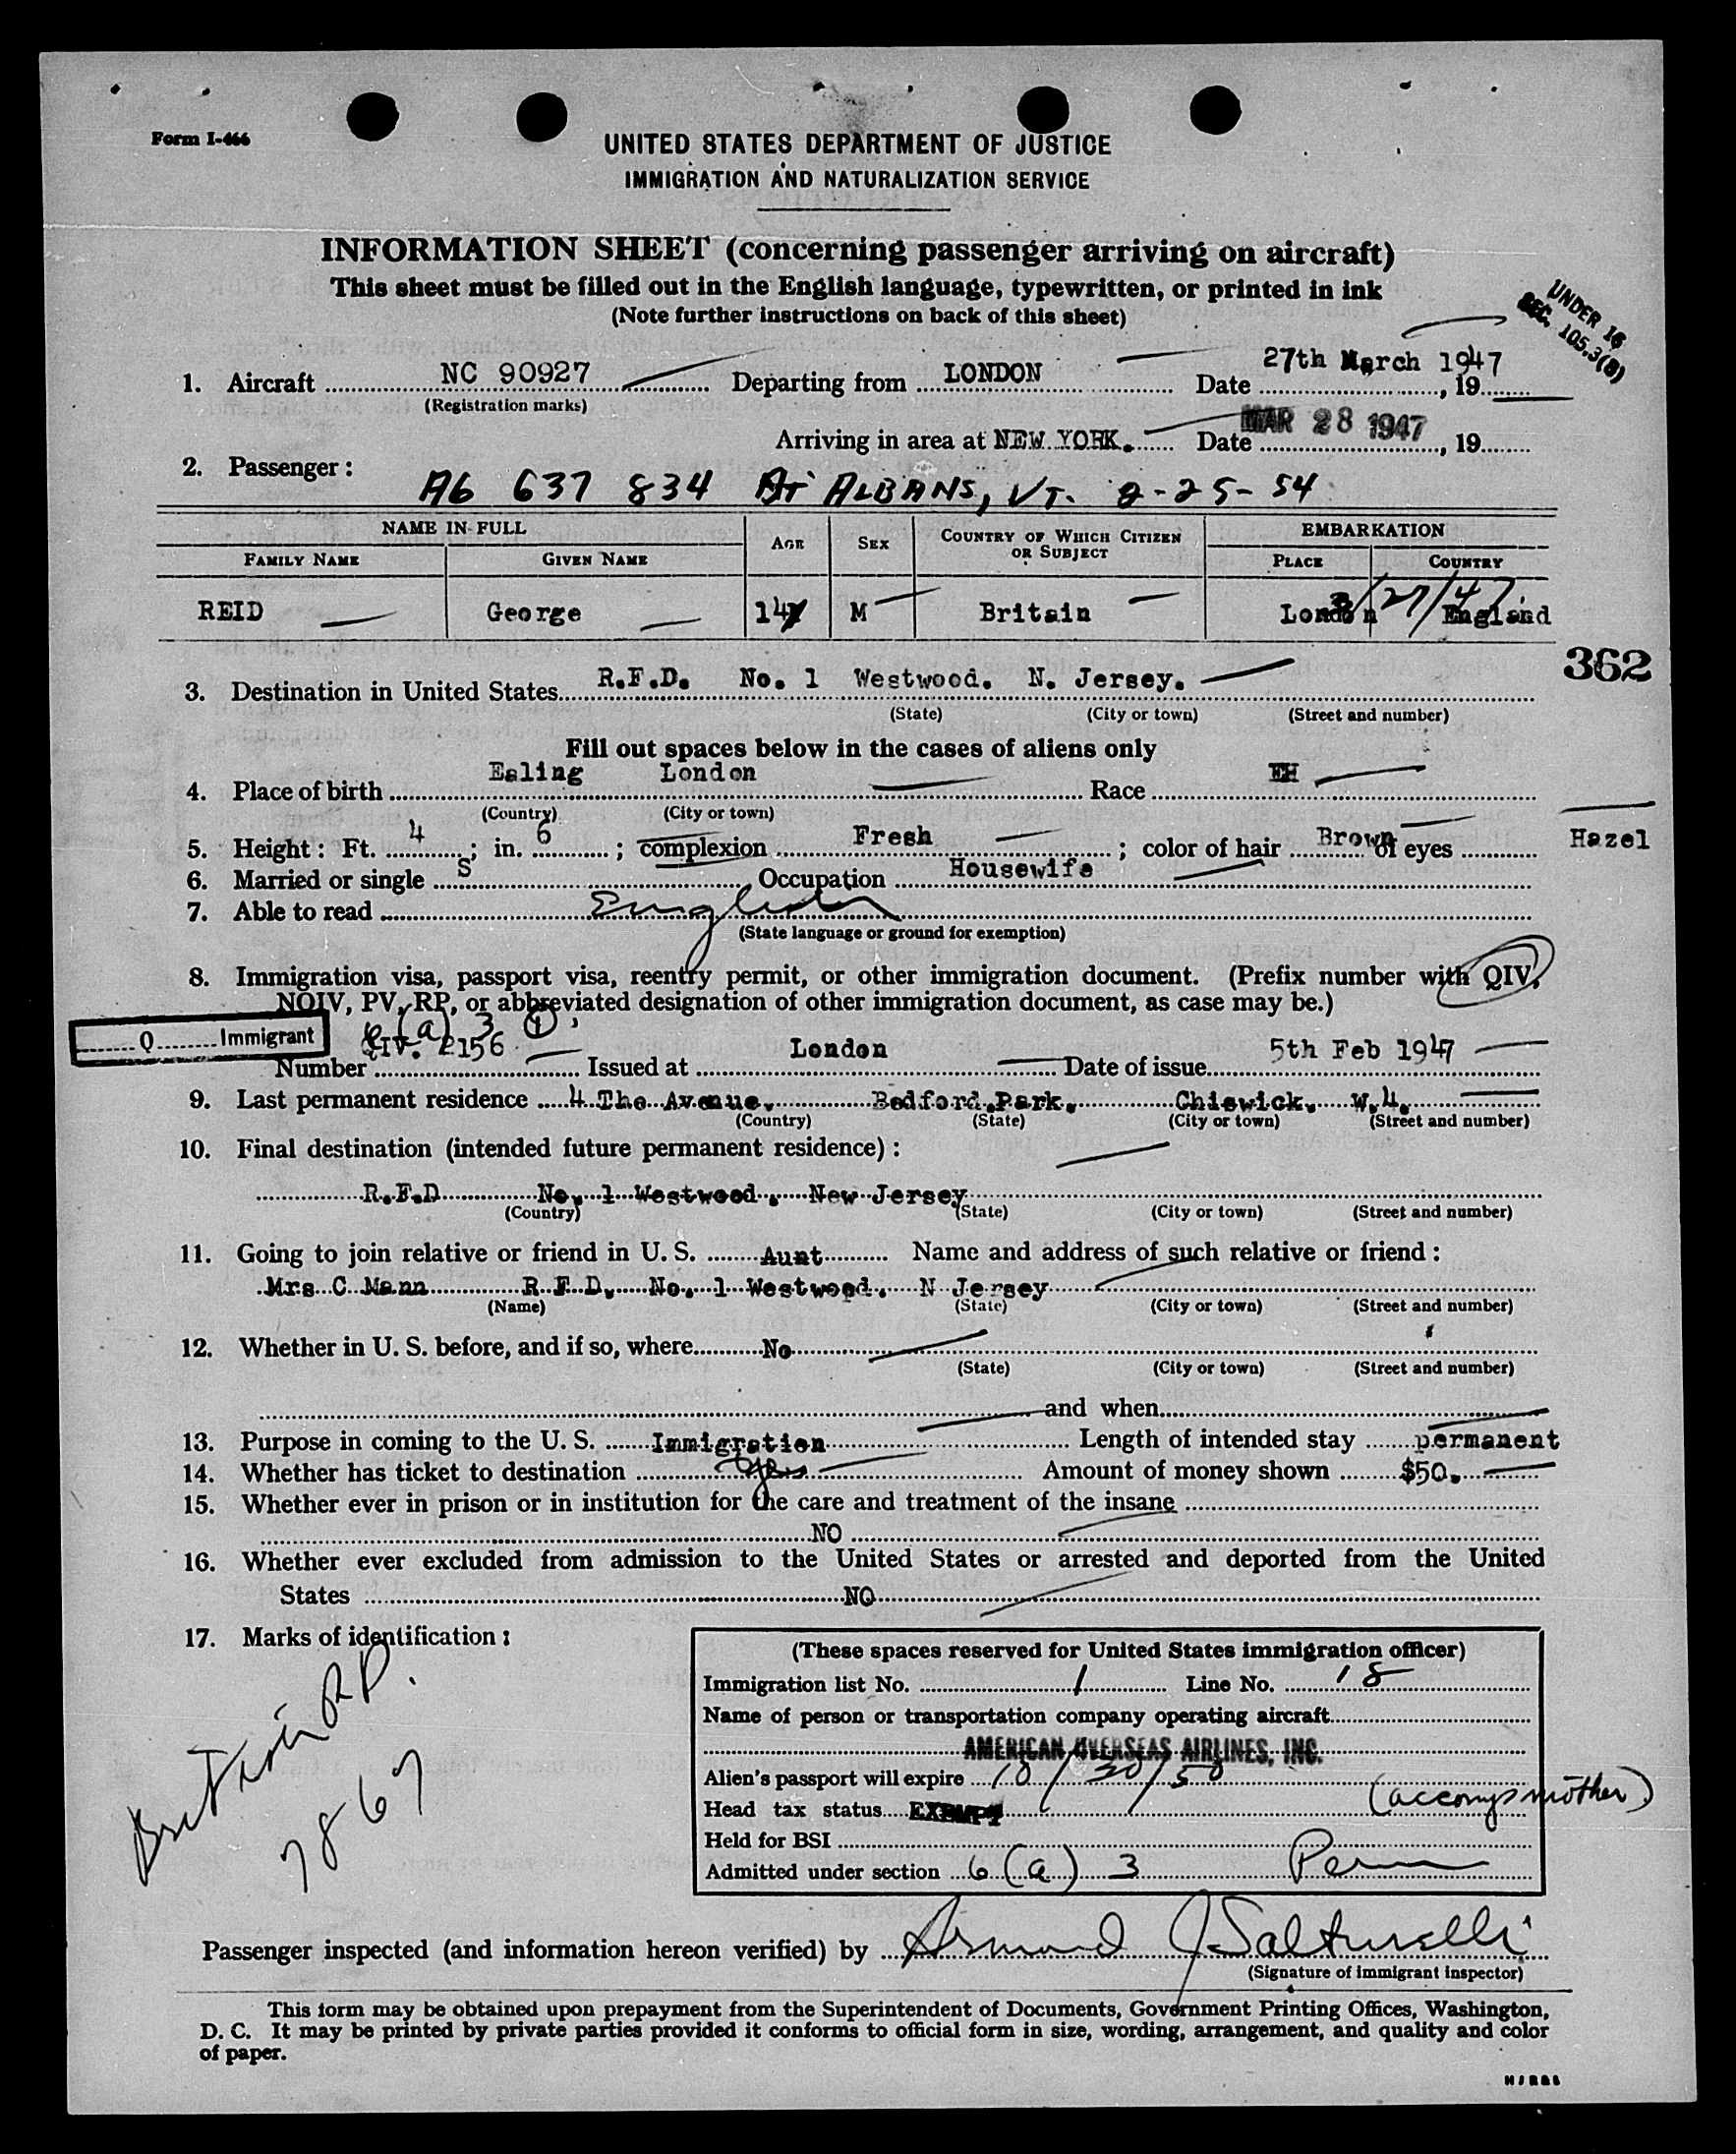 Form I-466
UNITED STATES DEPARTMENT OF JUSTICE
IMMIGRATION AND NATURALIZATION SERVICE
INFORMATION SHEET (concerning passenger arriving on aircraft)
This sheet must be filled out in the English language, typewritten, or printed in ink
(Note further instructions on back of this sheet)
UNDER 16
SEC. 105.3(8)
1. Aircraft NC 90927 Departing from LONDON Date 27th March 1947, 19
(Registration marks)
Arriving in area at NEW YORK. Date MAR 28 1947, 19
2. Passenger:
A6 637 834 St ALBANS, VT. 2-25-54
NAME IN FULL AGE SEX COUNTRY OF WHICH CITIZEN OR SUBJECT EMBARKATION
FAMILY NAME GIVEN NAME PLACE COUNTRY
3/27/47
REID George 14 M Britain London England
362
3. Destination in United States R.F.D. No. 1 Westwood. N. Jersey.
(State) (City or town) (Street and number)
Fill out spaces below in the cases of aliens only
4. Place of birth Ealing London Race EH
(Country) (City or town)
5. Height: Ft. 4; in. 6; complexion Fresh; color of hair Brown of eyes Hazel
6. Married or single S, Occupation Housewife
7. Able to read English
(State language or ground for exemption)
8. Immigration visa, passport visa, reentry permit, or other immigration document. (Prefix number with QIV,
NQIV, PV, RP, or abbreviated designation of other immigration document, as case may be.)
Q Immigrant
(a) 3 1
Number QIV. 2156 Issued at London Date of issue 5th Feb 1947
9. Last permanent residence 4 The Avenue, Bedford Park, Chiswick, W.4.
(Country) (State) (City or town) (Street and number)
10. Final destination (intended future permanent residence):
R.F.D No. 1 Westwood, New Jersey
(Country) (State) (City or town) (Street and number)
11. Going to join relative or friend in U. S. Aunt Name and address of such relative or friend:
Mrs C Mann R.F.D. No. 1 Westwood. N Jersey
(Name) (State) (City or town) (Street and number)
12. Whether in U. S. before, and if so, where No
(State) (City or town) (Street and number)
and when
13. Purpose in coming to the U. S. Immigration Length of intended stay permanent
14. Whether has ticket to destination yes Amount of money shown $50.
15. Whether ever in prison or in institution for the care and treatment of the insane
NO
16. Whether ever excluded from admission to the United States or arrested and deported from the United
States NO
17. Marks of identification:
7867
(These spaces reserved for United States immigration officer)
Immigration list No. 1 Line No. 18
Name of person or transportation company operating aircraft
AMERICAN OVERSEAS AIRLINES, INC.
Alien's passport will expire 10/30/50
Head tax status EXEMPT (accomps mother)
Held for BSI
Admitted under section 6(a) 3 Perm
Passenger inspected (and information hereon verified) by Armand J Salturelli
(Signature of immigrant inspector)
This form may be obtained upon prepayment from the Superintendent of Documents, Government Printing Offices, Washington,
D. C. It may be printed by private parties provided it conforms to official form in size, wording, arrangement, and quality and color
of paper.